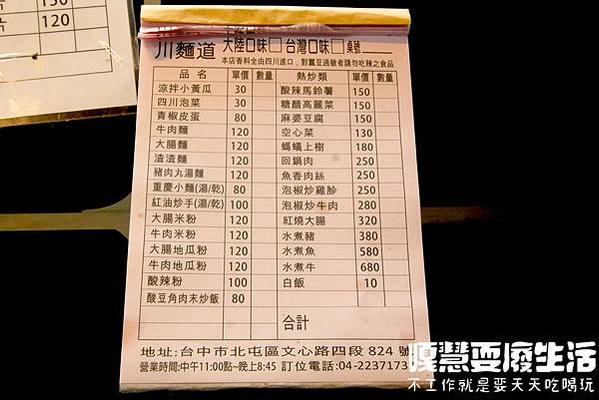 川麵道 大陸口味□ 台灣口味□ 桌號
本店香料全由四川進口，對蠶豆過敏者請勿吃辣之食品
品名 單價 數量 熱炒類 單價 數量
涼拌小黃瓜 30 酸辣馬鈴薯 150
四川泡菜 30 糖醋高麗菜 150
青椒皮蛋 80 麻婆豆腐 150
牛肉麵 120 空心菜 130
大腸麵 120 螞蟻上樹 180
渣渣麵 120 回鍋肉 250
豬肉丸湯麵 120 魚香肉絲 250
重慶小麵(湯/乾) 80 泡椒炒雞胗 250
紅油炒手(湯/乾) 100 泡椒炒牛肉 280
大腸米粉 120 紅燒大腸 320
牛肉米粉 120 水煮豬 380
大腸地瓜粉 120 水煮魚 580
牛肉地瓜粉 120 水煮牛 680
酸辣粉 100 白飯 10
酸豆角肉末炒飯 80
合計
地址:台中市北屯區文心路四段 824 號
營業時間:中午11:00點~晚上8:45 訂位電話:04-2237173
嘎慧耍廢生活
不工作就是要天天吃喝玩
120